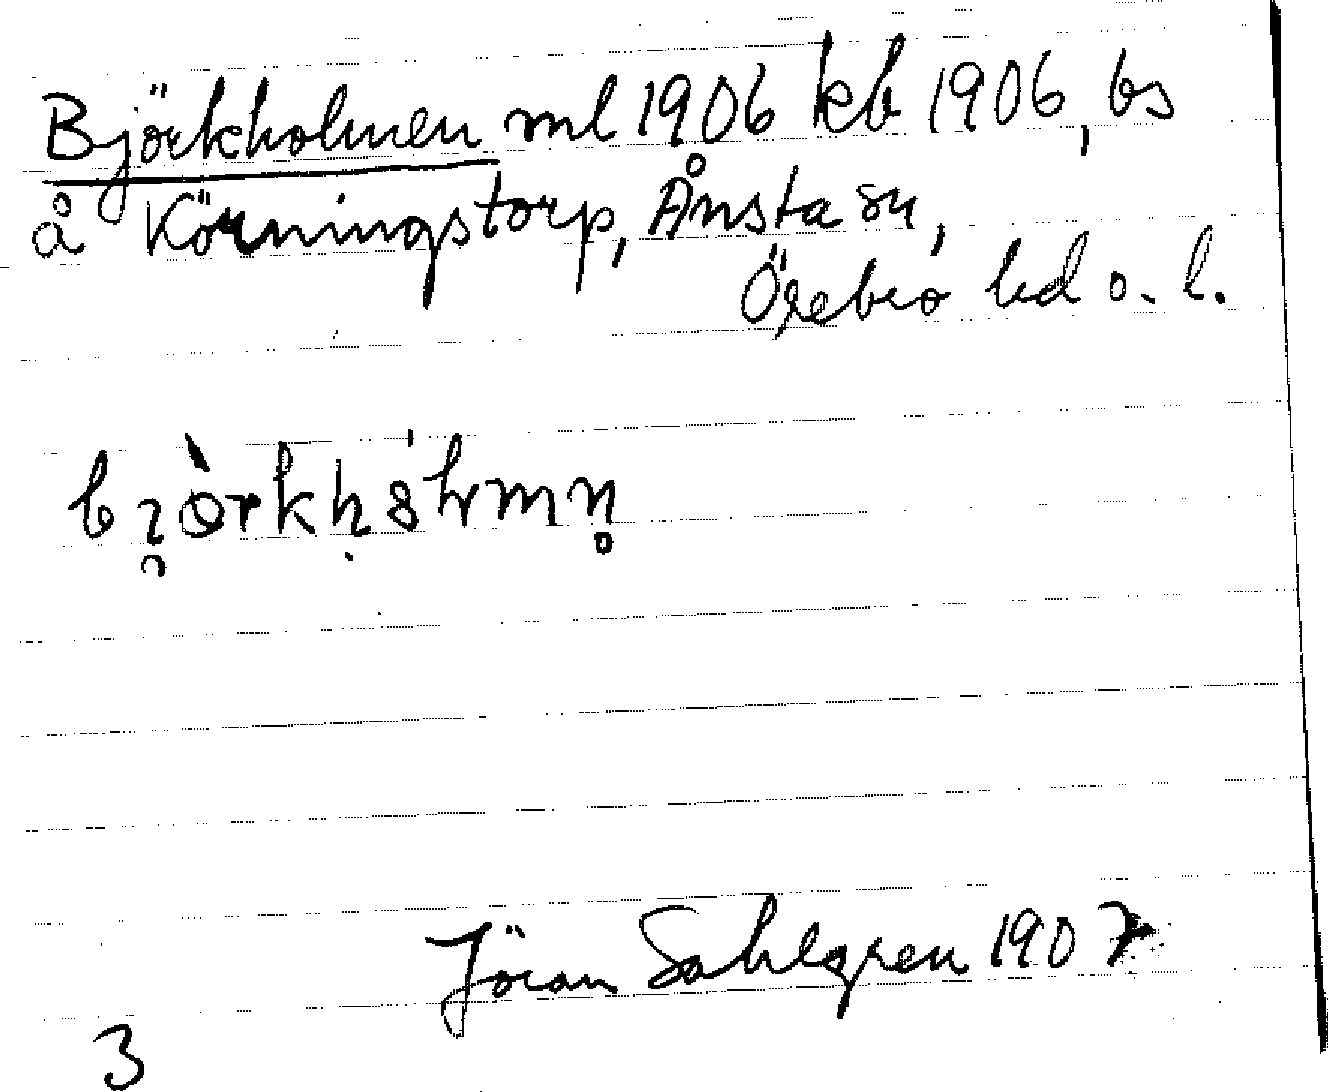 Björkholmen ml 1906 kb 1906, bs
å Körningstorp, Ånsta sn,
Örebro hd o. l.
Jöran Sahlgren 1907
3